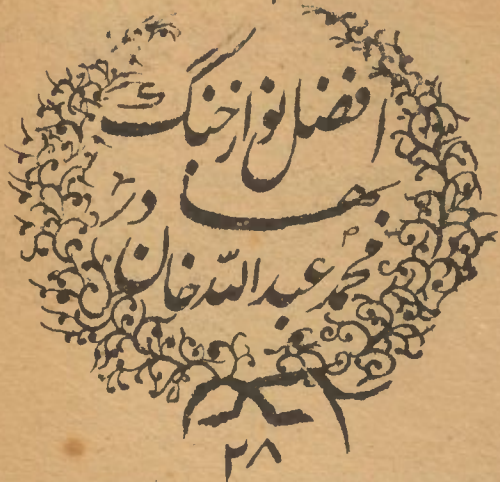 افضل نواز جنگ
بهادر
محمد عبد اللہ خان
۲۸